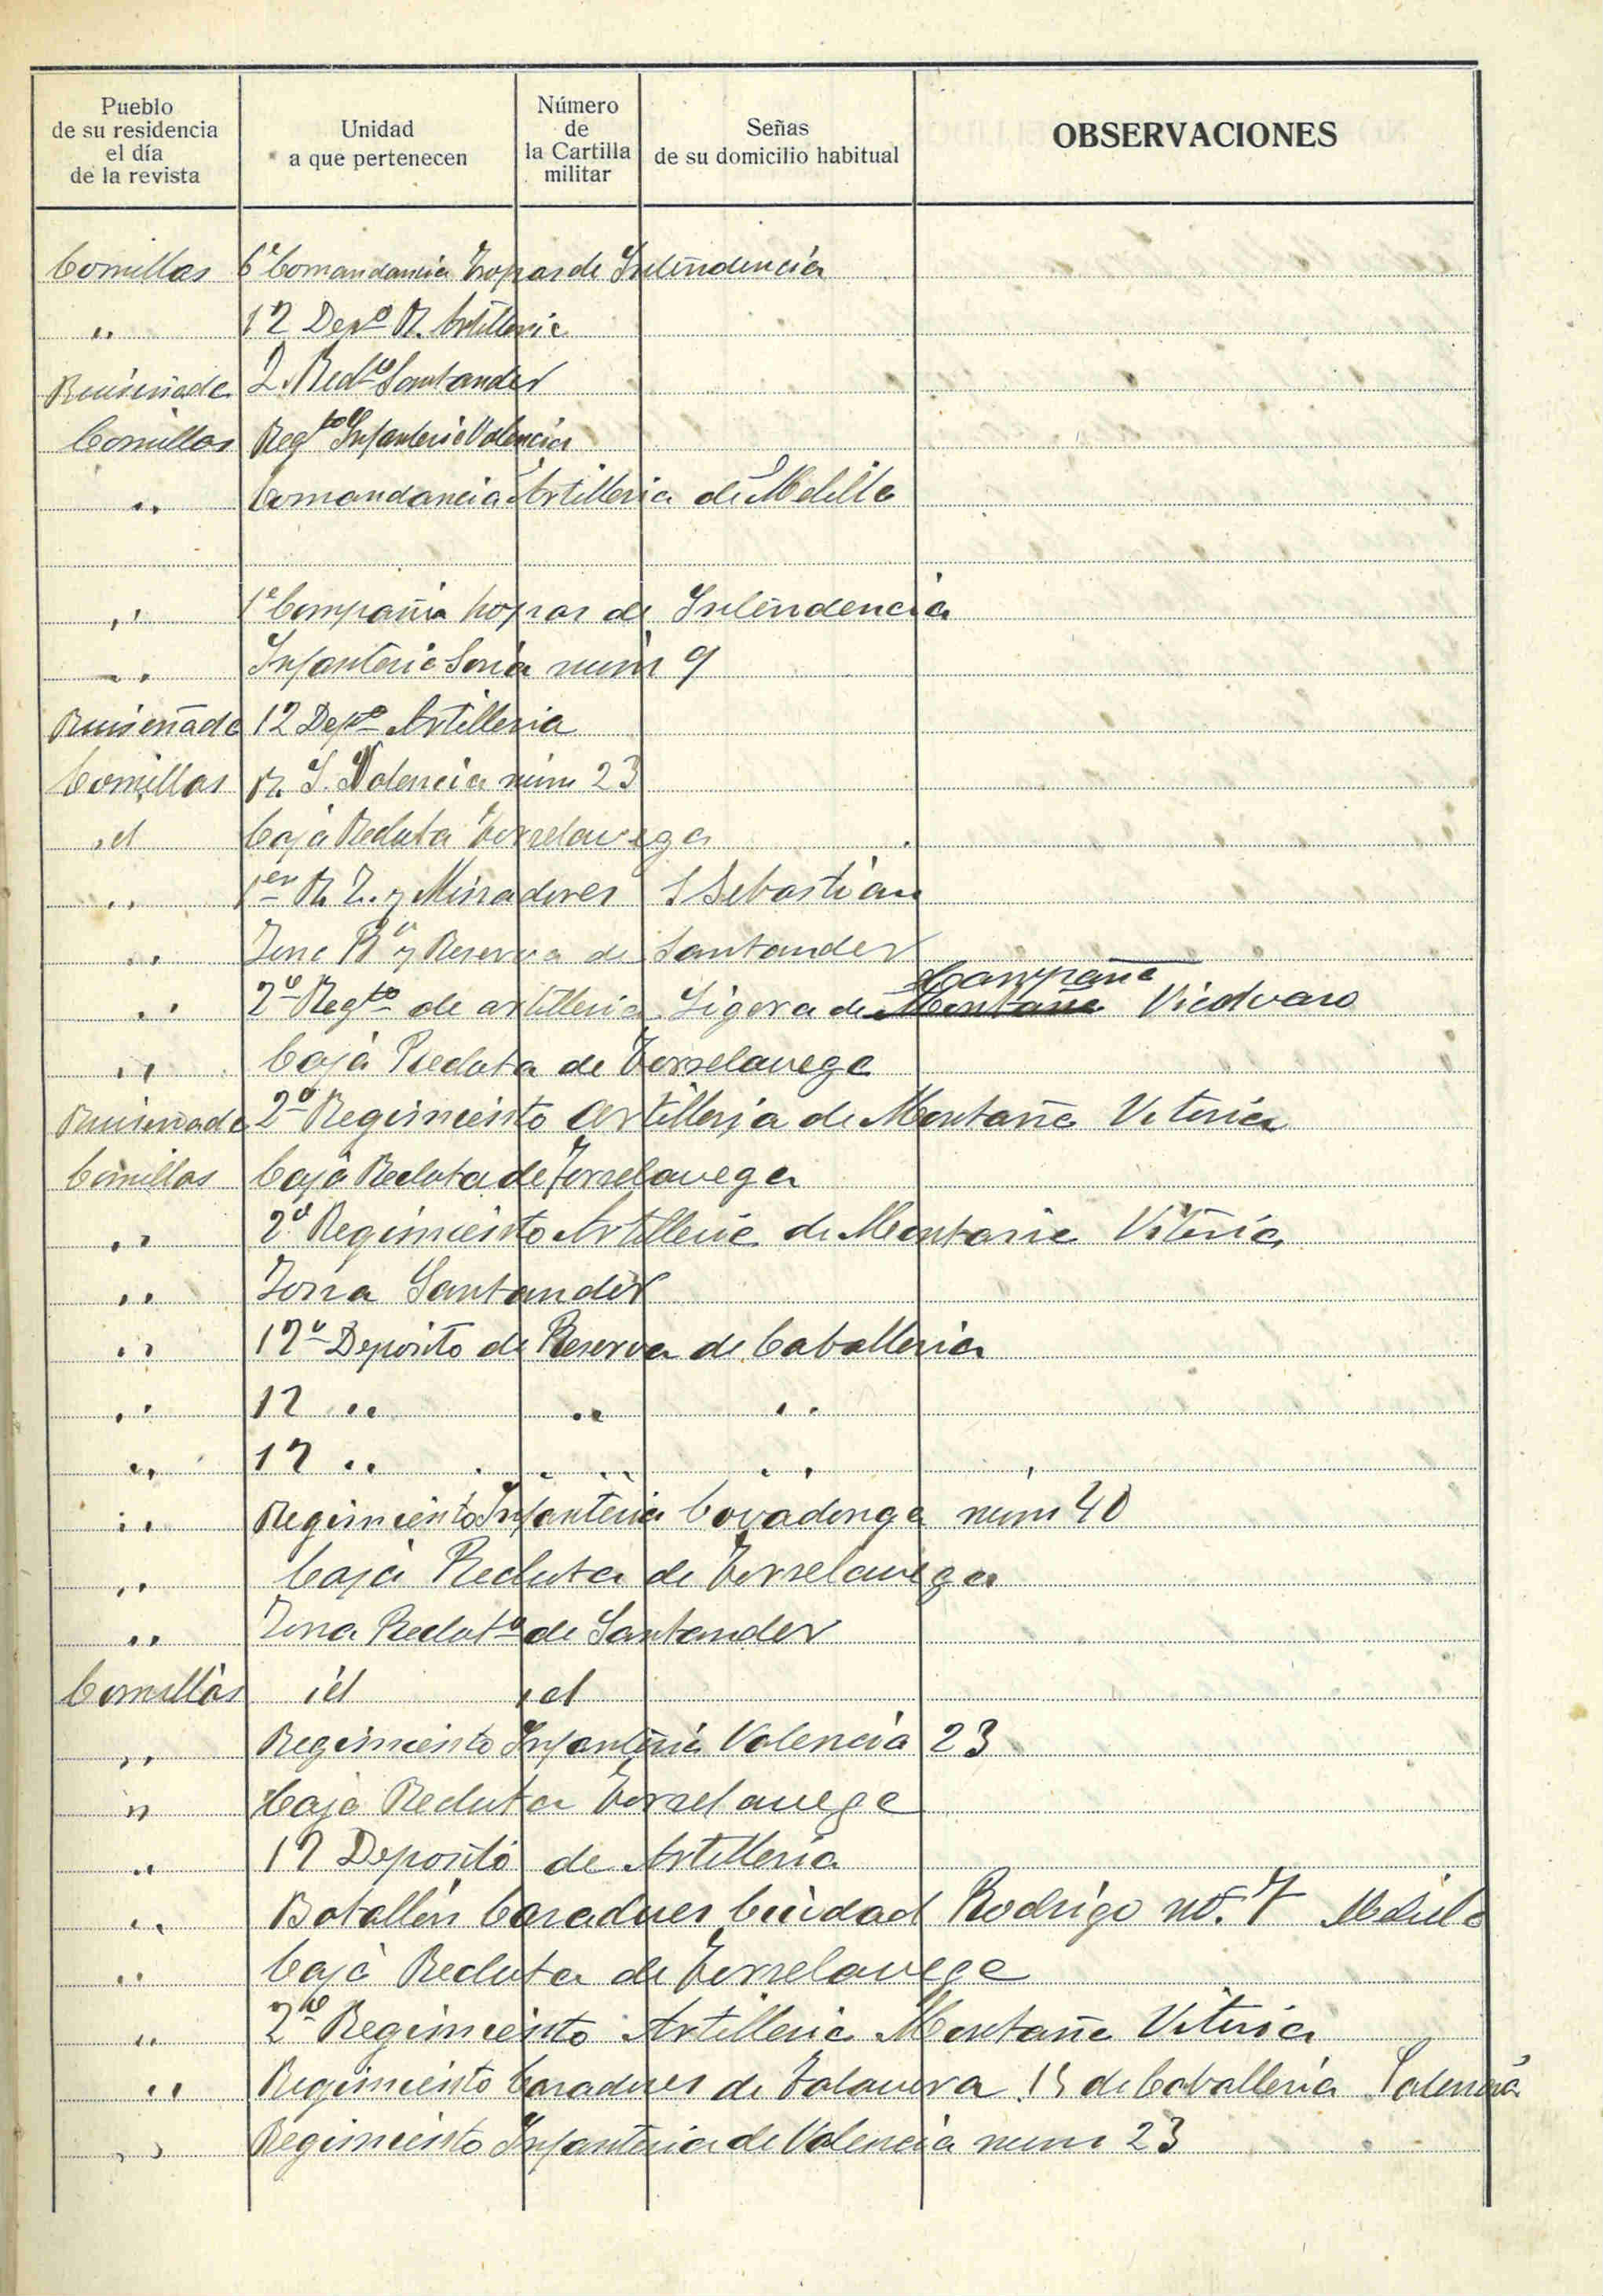 Pueblo de su residencia el día de la revista
Unidad a que pertenecen
Número de la Cartilla militar
Señas de su domicilio habitual
OBSERVACIONES
Comillas 6ª Comandancia Tropas de Intendencia
" 12 Depº R. Artilleria
Ruiseñada 2 Santander
Comillas Regto Infanteria Valencia
" Comandancia Artilleria de Melilla
" 1ª Compañia tropas de Intendencia
" Infanteria Soria num 9
Ruiseñada 12 Depº Artilleria
Comillas R. I. Valencia núm 23
id Caja Recluta Torrelavega
" 1er R. Z. y Minadores S Sebastian
" Zona Rº y Reserva de Santander
" 2º Regto de artilleria Ligera de Campaña Vicálvaro
" Caja Recluta de Torrelavega
Ruiseñada 2º Regimiento Artilleria de Montaña Vitoria
Comillas Caja Recluta de Torrelavega
" 2º Regimiento Artilleria de Montaña Vitoria
" Zona Santander
" 12º Deposito de Reserva de Caballeria
" 12 " " "
" 12 " " "
" Regimiento Infanteria Covadonga num 40
" Caja Recluta de Torrelavega
" Zona Reclutº de Santander
Comillas id id
" Regimiento Infanteria Valencia 23
" Caja Recluta Torrelavega
" 12 Deposito de Artilleria
" Batallón Cazadores Ciudad Rodrigo nº. 7 Melilla
" Caja Recluta de Torrelavega
" 2º Regimiento Artilleria Montaña Vitoria
" Regimiento Cazadores de Talavera 15 de Caballeria Palencia
" Regimiento Infanteria de Valencia num 23